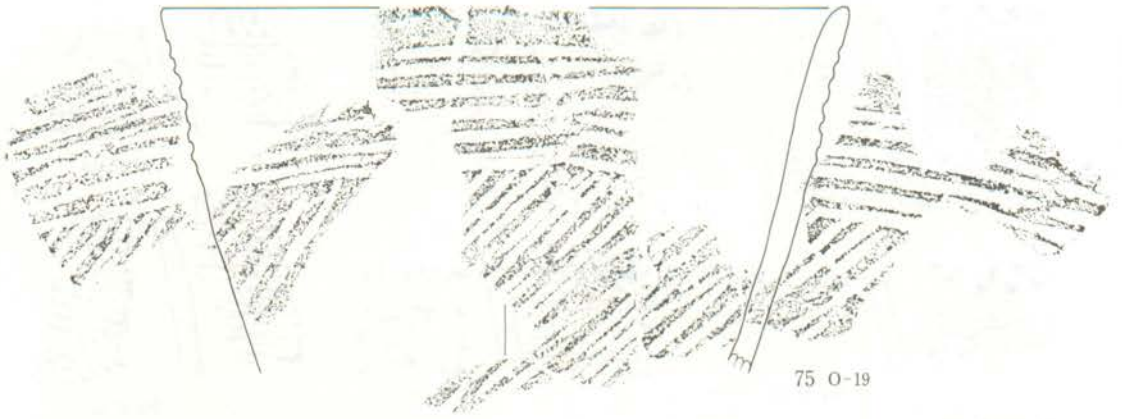 75 O-19